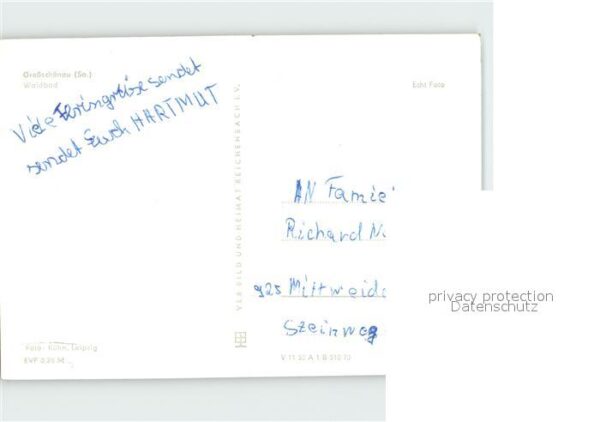 Großschönau (Sa.)
Waldbad
Echt Foto
Viele Feriengrüße sendet
sendet Euch HARTMUT
VEB BILD UND HEIMAT REICHENBACH I. V.
AN Famie
Richard N
925 Mittweida
Szeinweg
Foto: Kühn, Leipzig
EVP 0,20 M
V 11 50 A 1/B 510 70
privacy protection
Datenschutz